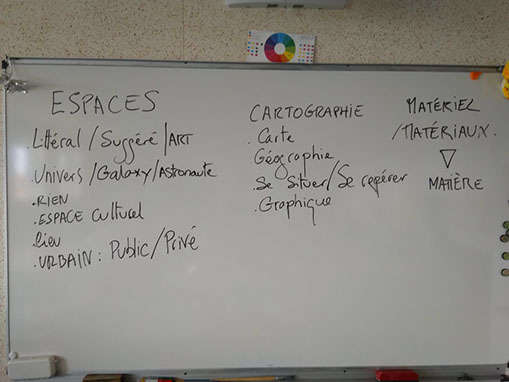 ESPACES
.Littéral/Suggéré/ART
.Univers/Galaxy/Astronaute
.RIEN
.ESPACE Culturel
.lieu
.URBAIN : Public/Privé
CARTOGRAPHIE
.Carte
Géographie
.Se Situer/Se repérer
.Graphique
MATÉRIEL
/MATÉRIAUX.
MATIÈRE